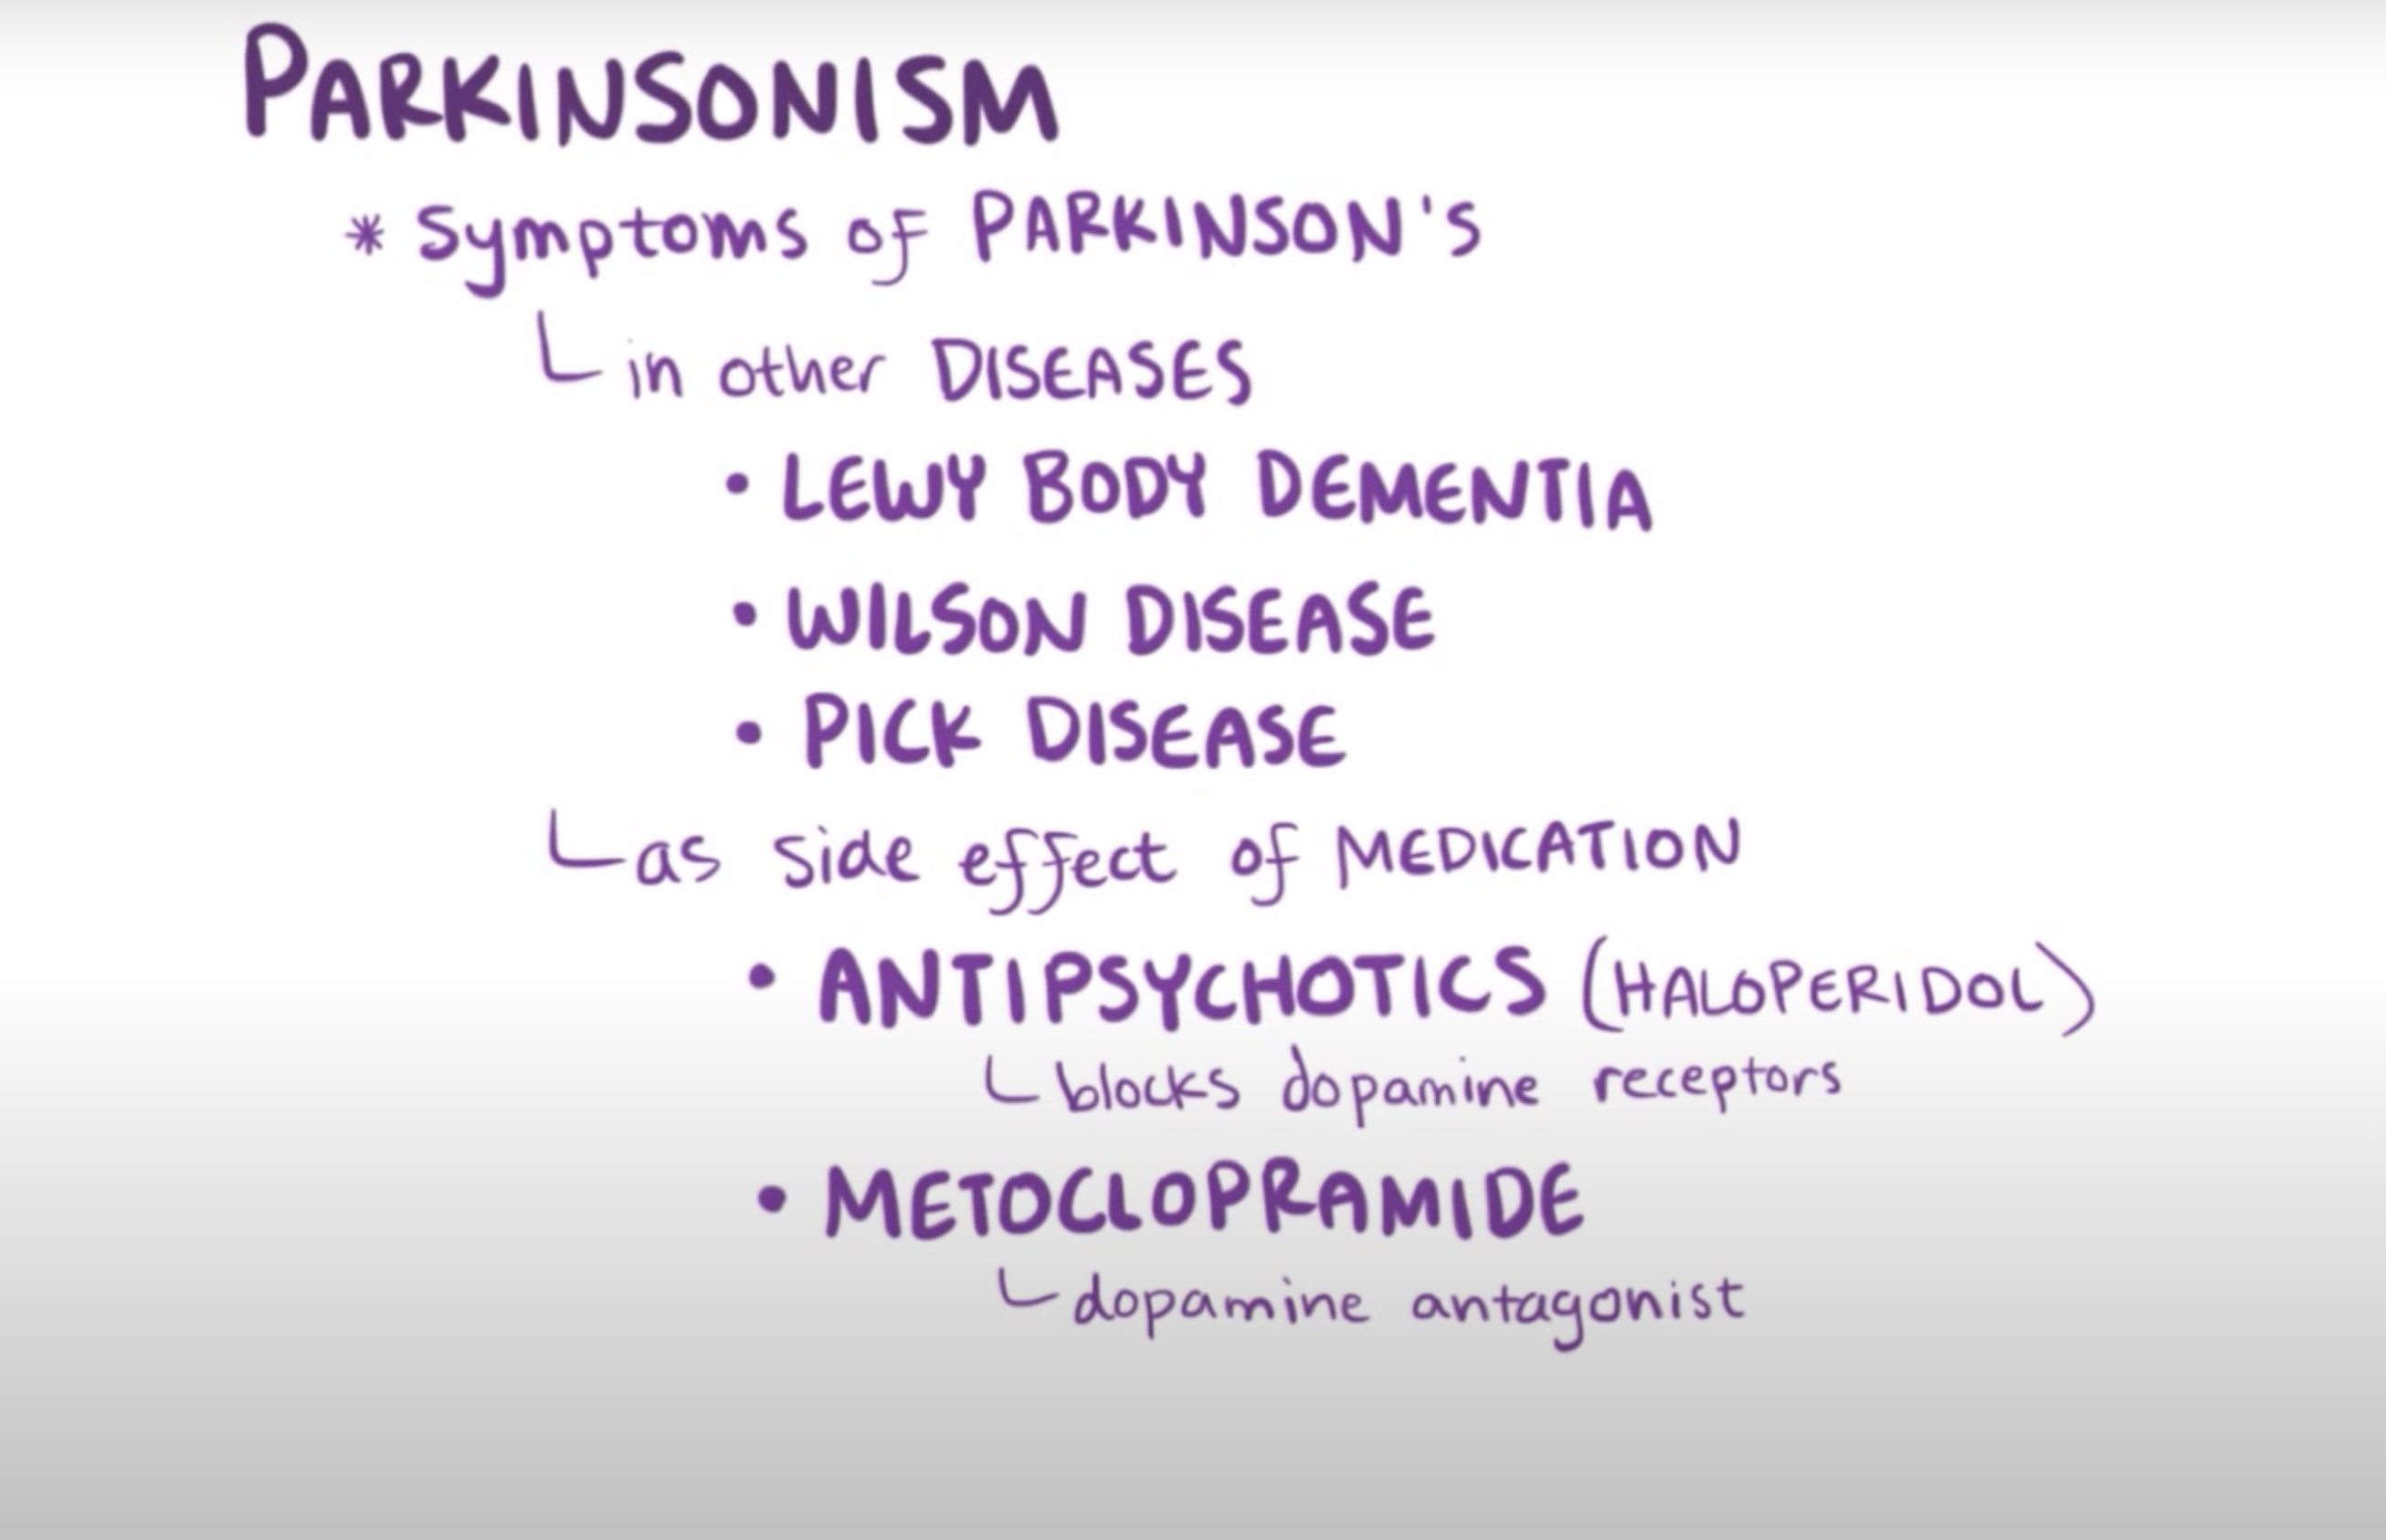 PARKINSONISM
* Symptoms of PARKINSON's
in other DISEASES
• LEWY BODY DEMENTIA
• WILSON DISEASE
• PICK DISEASE
as side effect of MEDICATION
• ANTIPSYCHOTICS (HALOPERIDOL)
blocks dopamine receptors
• METOCLOPRAMIDE
dopamine antagonist